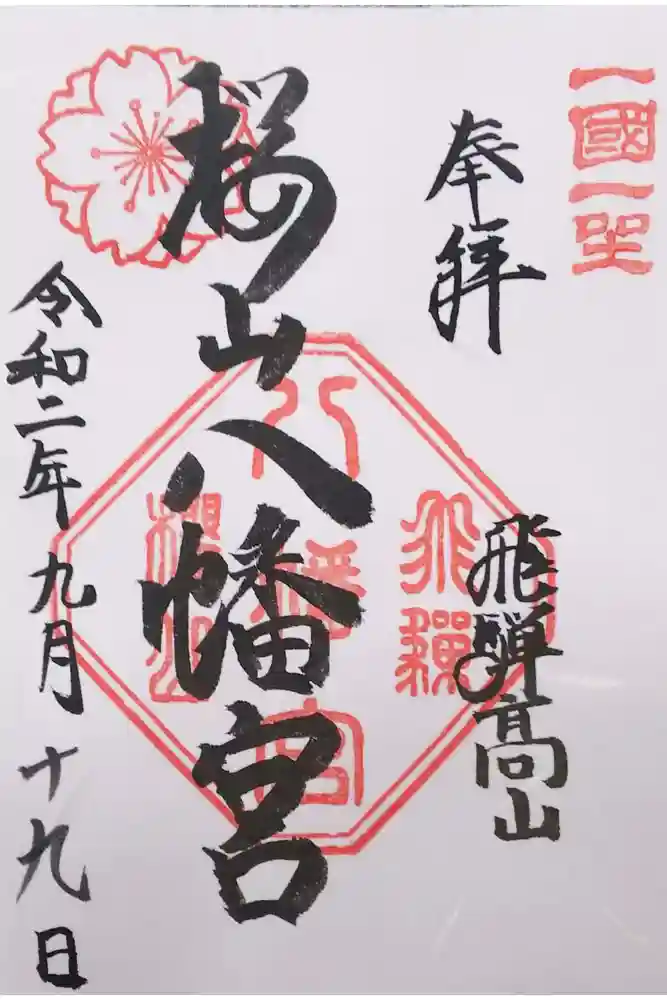 一國一社
奉拝
飛騨高山
飛騨
八幡宮
櫻山
桜山八幡宮
令和二年九月十九日